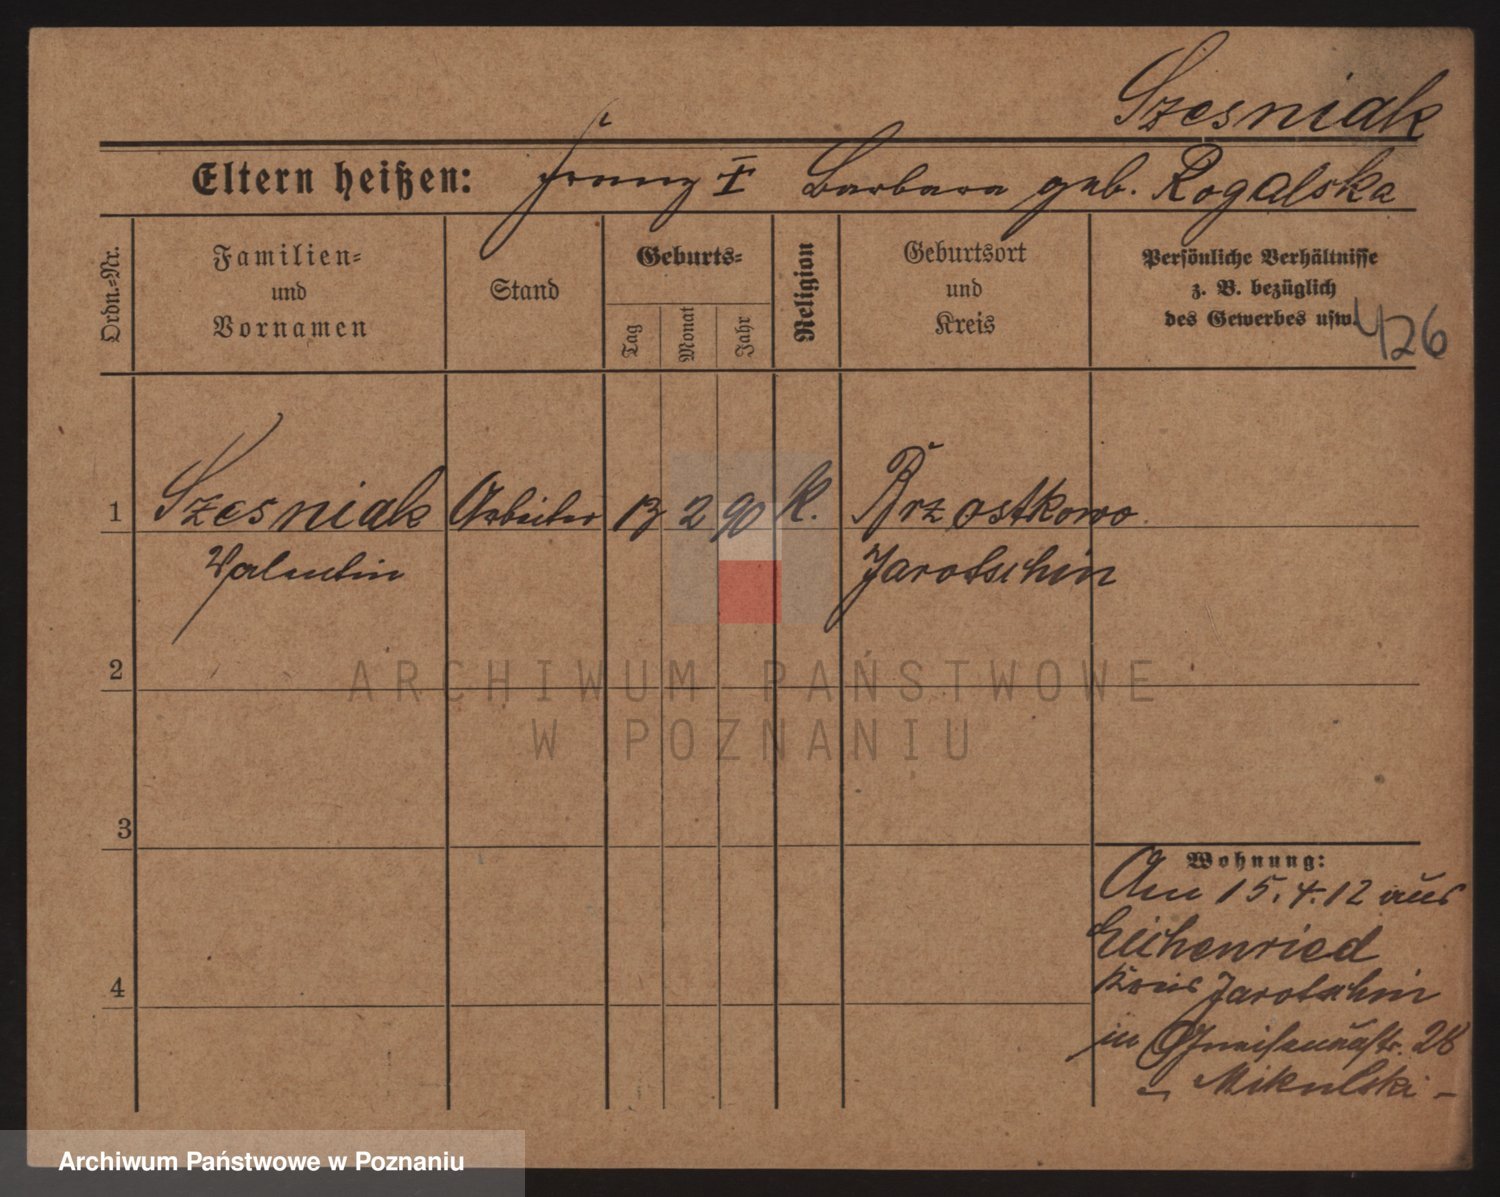 Szesniak
Eltern heißen: Franz I Barbara geb. Rogalska
Ordn.-Nr.
Familien-
und
Vornamen
Stand
Geburts-
Tag
Monat
Jahr
Religion
Geburtsort
und
Kreis
Persönliche Verhältnisse
z. B. bezüglich
des Gewerbes usw.
426
1 Szesniak Arbeiter 13 2 90 K. Brzostkowo
Valentin Jarotschin
2
ARCHIWUM PAŃSTWOWE
W POZNANIU
3
Wohnung:
Am 15.4.12 aus
Eichenried
4
Kreis Jarotschin
in Gneisenaustr. 28
Mikulski -
Archiwum Państwowe w Poznaniu